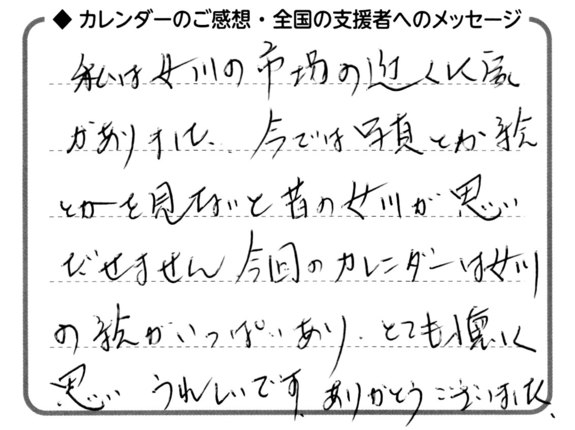 ◆ カレンダーのご感想・全国の支援者へのメッセージ
私は女川の市場の近くに家
がありました、今では写真とか絵
とかを見ないと昔の女川が思い
だせません 今回のカレンダーは女川
の絵がいっぱいあり、とても懐しく
思い うれしいです、ありがとうございました、